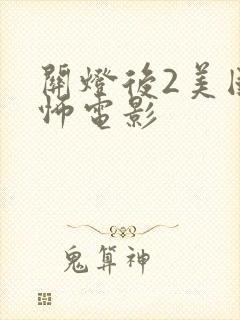 開燈後2美
怖電影
鬼算神